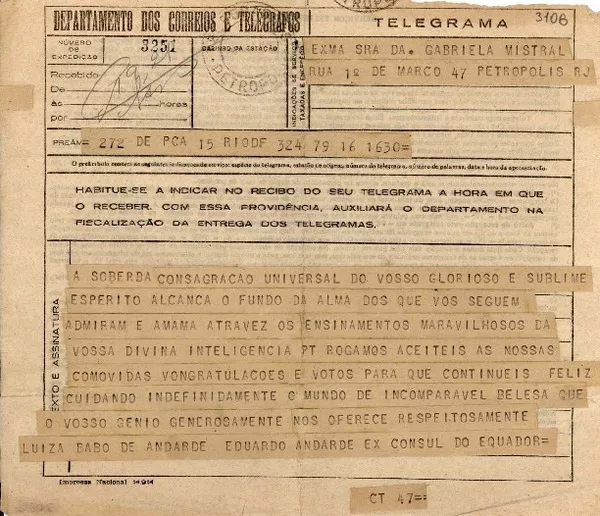 PETROPOLIS
DEPARTAMENTO DOS CORREIOS E TELÉGRAFOS
TELEGRAMA
3108
NÚMERO DE EXPEDIÇÃO
3251
CARIMBO DA ESTAÇÃO
PETROPOLIS
INDICAÇÕES DE SERVIÇO TAXADAS E ENDEREÇO
EXMA SRA DA. GABRIELA MISTRAL
RUA 1º DE MARCO 47 PETROPOLIS RJ
Recebido
De
às horas
por
PREÂM= 272 DE PCA 15 RIODF 324 79 16 1630=
HABITUE-SE A INDICAR NO RECIBO DO SEU TELEGRAMA A HORA EM QUE
O RECEBER. COM ESSA PROVIDÊNCIA, AUXILIARÁ O DEPARTAMENTO NA
FISCALIZAÇÃO DA ENTREGA DOS TELEGRAMAS.
TEXTO E ASSINATURA
A SOBERBA CONSAGRACAO UNIVERSAL DO VOSSO GLORIOSO E SUBLIME
ESPERITO ALCANCA O FUNDO DA ALMA DOS QUE VOS SEGUEM
ADMIRAM E AMAMA ATRAVEZ OS ENSINAMENTOS MARAVILHOSOS DA
VOSSA DIVINA INTELIGENCIA PT ROGAMOS ACEITEIS AS NOSSAS
COMOVIDAS VONGRATULACOES E VOTOS PARA QUE CONTINUEIS FELIZ
CUIDANDO INDEFINIDAMENTE O MUNDO DE INCOMPARAVEL BELESA QUE
O VOSSO SENIO GENEROSAMENTE NOS OFERECE RESPEITOSAMENTE
LUIZA BABO DE ANDARDE EDUARDO ANDARDE EX CONSUL DO EQUADOR=
Imprensa Nacional 14.914
CT 47==